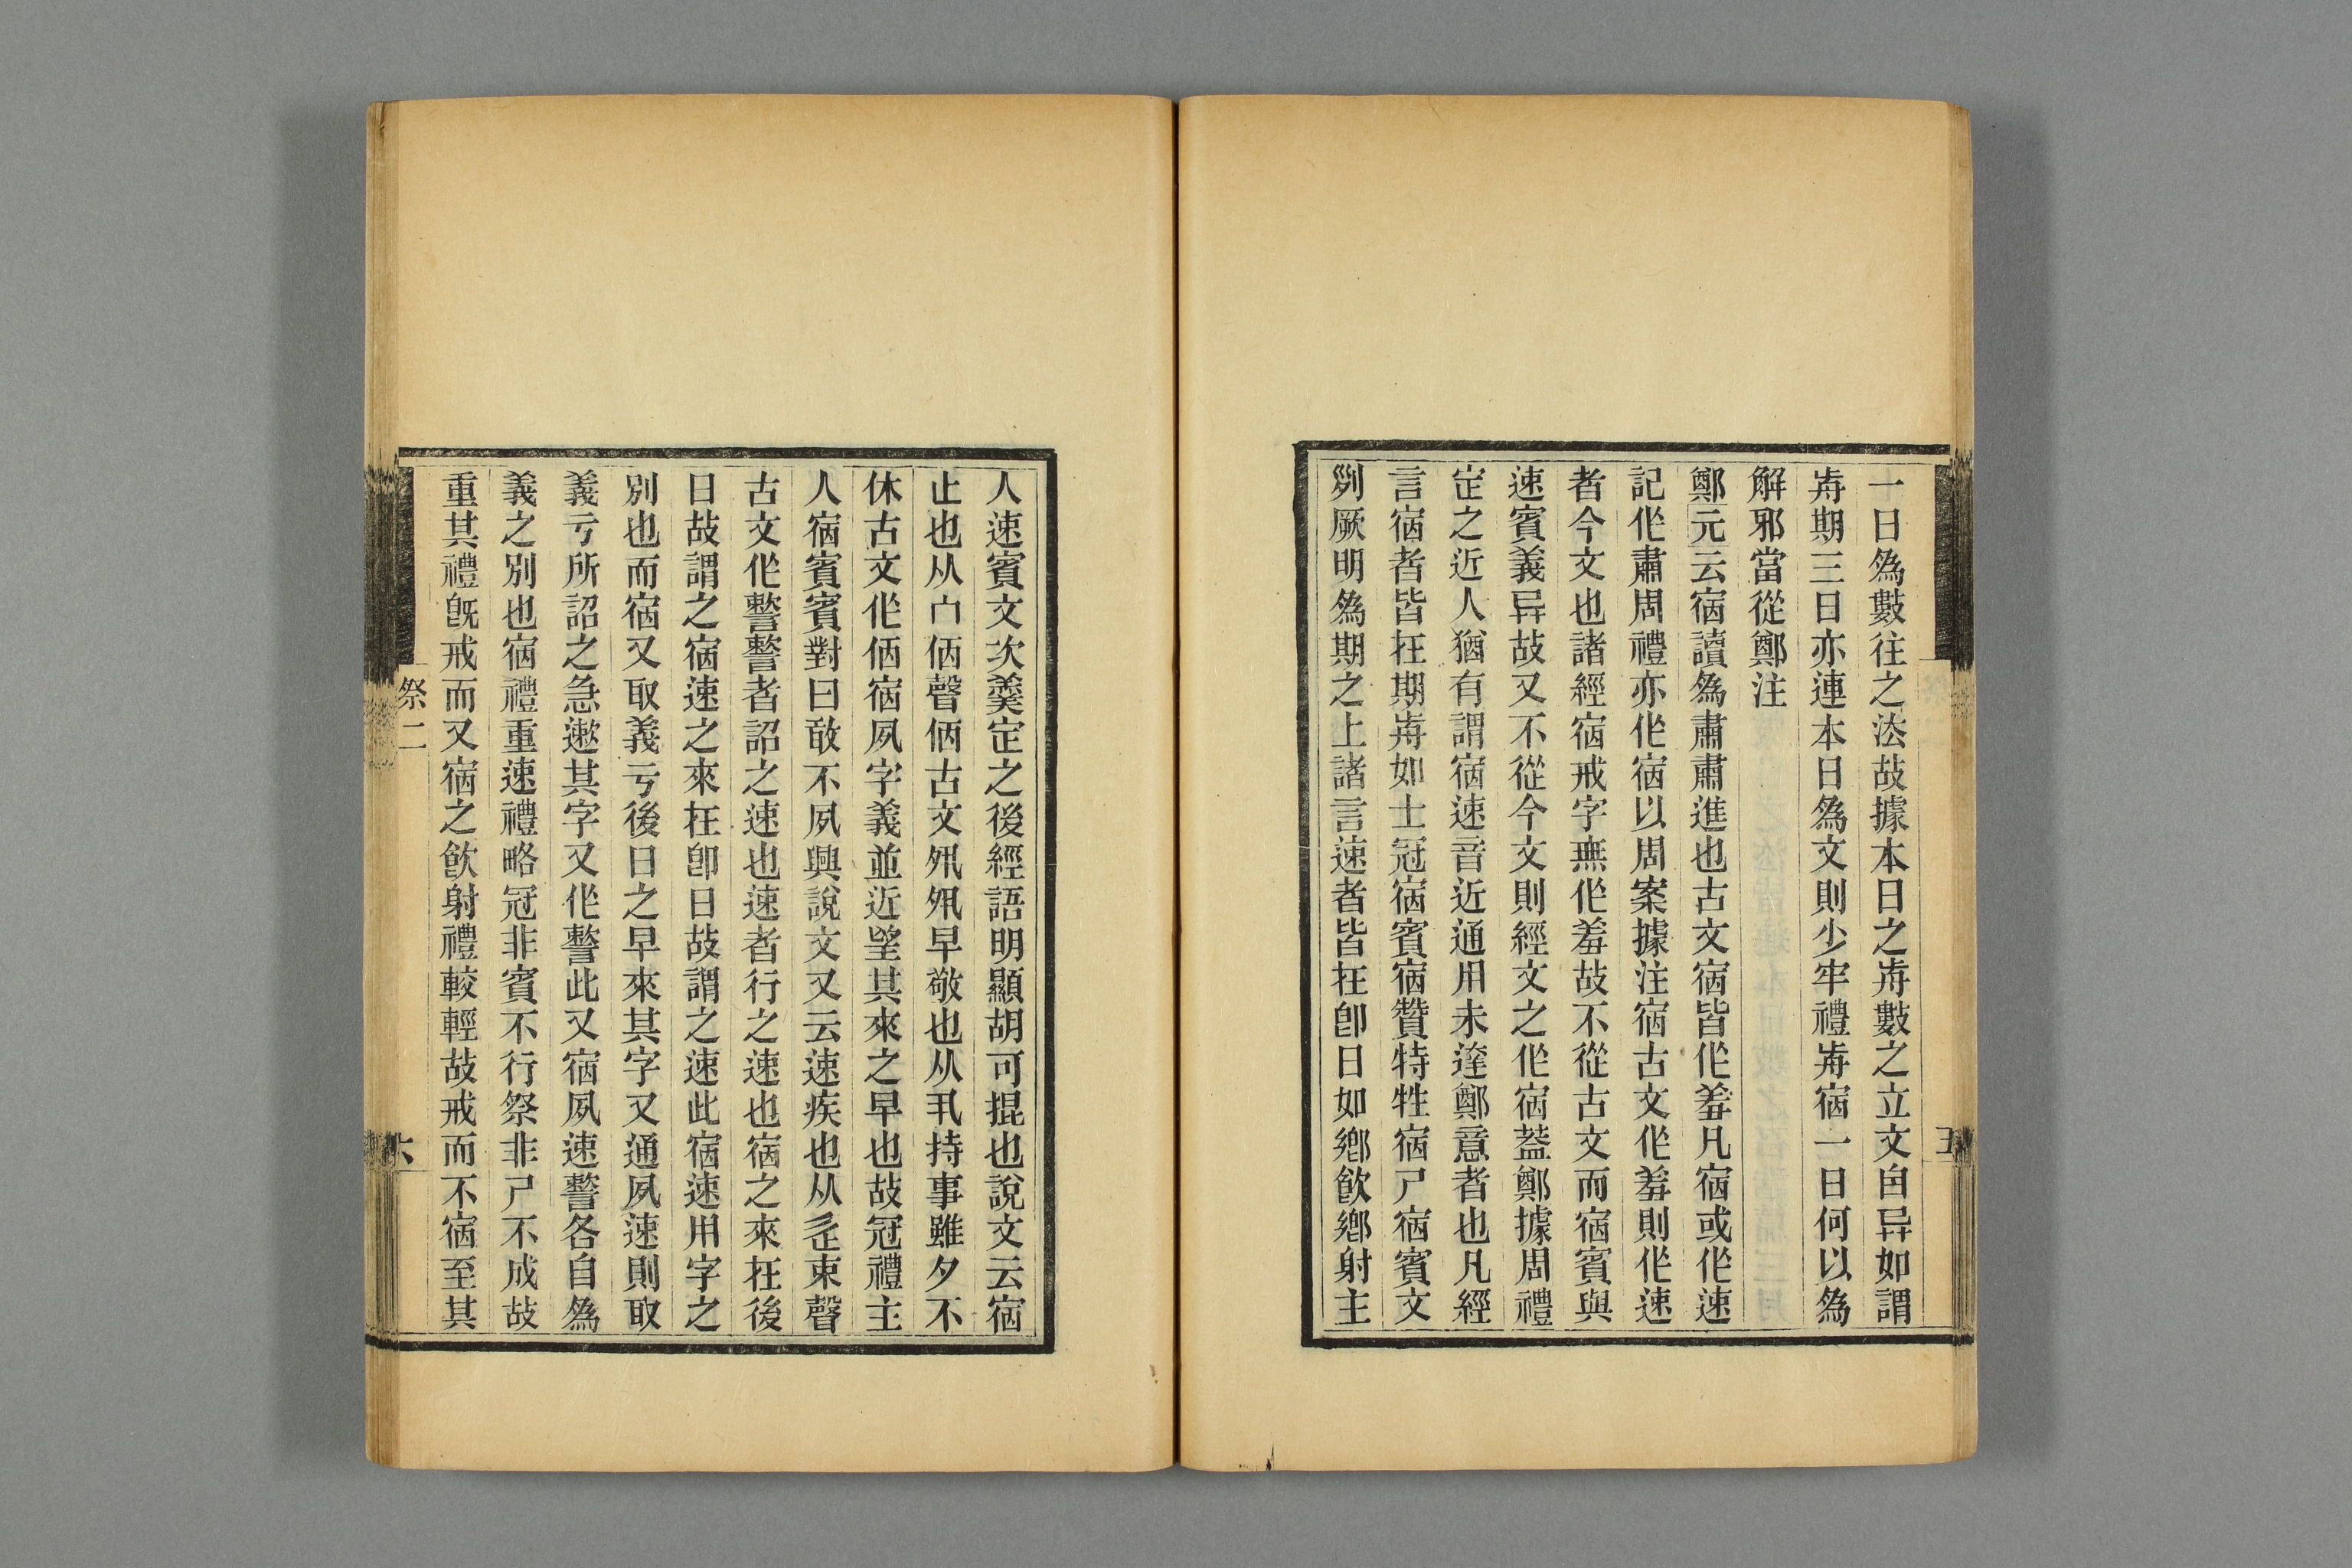 一日爲數往之法故據本日之歬數之立文自异如謂
歬期三日亦連本日爲文則少牢禮歬宿一日何以爲
解邪當從鄭注
鄭元云宿讀爲肅肅進也古文宿皆作羞凡宿或作速
記作肅周禮亦作宿以周案據注宿古文作羞則作速
者今文也諸經宿戒字無作羞故不從古文而宿賓與
速賓義异故又不從今文則經文之作宿蓋鄭據周禮
定之近人猶有謂宿速音近通用未達鄭意者也凡經
言宿者皆在期歬如士冠宿賓宿贊特牲宿尸宿賓文
列厥明爲期之上諸言速者皆在卽日如鄉飮鄉射主
五
人速賓文次羹定之後經語明顯胡可掍也說文云宿
止也从宀㐁聲㐁古文夙夙早敬也从丮持事雖夕不
休古文作㐁宿夙字義並近朢其來之早也故冠禮主
人宿賓賓對曰敢不夙興說文又云速疾也从辵束聲
古文作警警者詔之速也速者行之速也宿之來在後
日故謂之宿速之來在卽日故謂之速此宿速用字之
別也而宿又取義亏後日之早來其字又通夙速則取
義亏所詔之急遬其字又作警此又宿夙速警各自爲
義之別也宿禮重速禮略冠非賓不行祭非尸不成故
重其禮旣戒而又宿之飮射禮較輕故戒而不宿至其
祭二
六